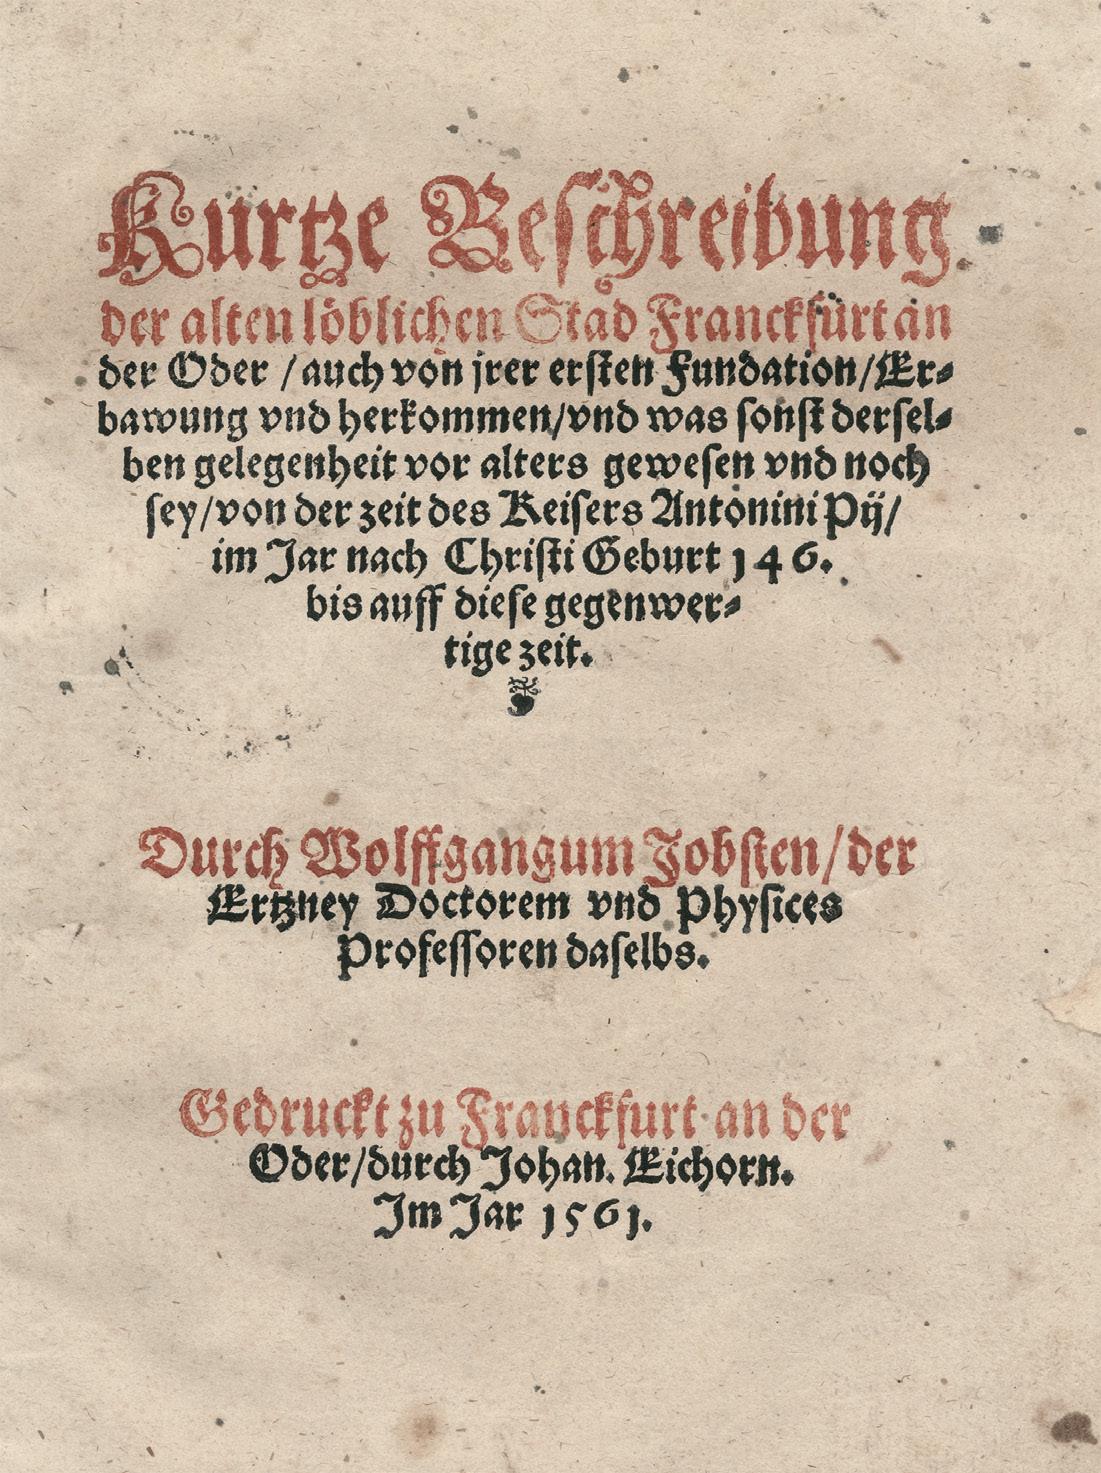 Kurtze Beschreibung
der alten löblichen Stad Franckfurt an
der Oder / auch von jrer ersten Fundation / Er⸗
bawung vnd herkommen / vnd was sonst dersel⸗
ben gelegenheit vor alters gewesen vnd noch
sey / von der zeit des Keisers Antonini Pij /
im Jar nach Christi Geburt 146.
bis auff diese gegenwer⸗
tige zeit.
Durch Wolffgangum Jobsten / der
Ertzney Doctorem vnd Physices
Professoren daselbs.
Gedruckt zu Franckfurt an der
Oder / durch Johan. Eichorn.
Im Jar 1561.